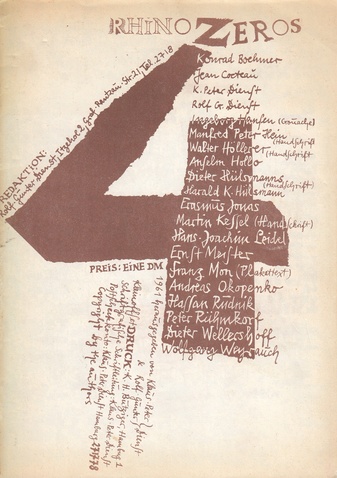 RHINOZEROS
Konrad Boehmer
Jean Cocteau
K. Peter Dienst
Rolf G. Dienst
Ingeborg Hansen (Gouache)
Manfred Peter Hein
(Handschrift
Walter Höllerer
(Handschrift
Anselm Hollo
Dieter Hülsmanns
(Handschrift)
Harald K. Hülsmann
Erasmus Jonas
Martin Kessel (Handschrift)
Hans-Joachim Leidel
Ernst Meister
Franz Mon (Plakattext)
Andreas Okopenko
Hassan Rüdnik
Peter Rühmkorf
Dieter Wellershoff
Wolfgang Weyrauch
4
REDAKTION:
Rolf-Gunter Dienst, Itzehoe 2, Graf-Rantzau-Str. 21, Tel. 2718
PREIS: EINE DM
1961 herausgegeben von Klaus-Peter Dienst
& Rolf-Gunter Dienst
DRUCK: K.H. Hamburg 1
Schriftgrafische Klaus-Peter Dienst
Copyright by the authors